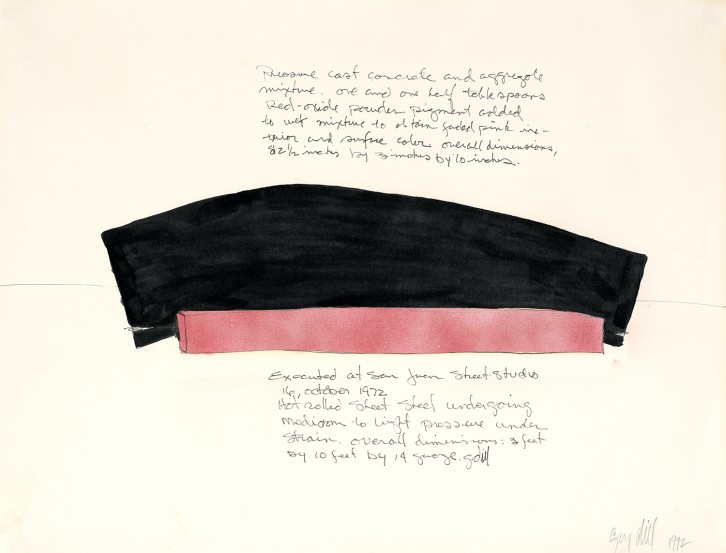 Pressure cast concrete and aggregate
mixture. one and one half tablespoons
Red-oxide powder pigment added
to wet mixture to obtain faded pink in-
terior and surface color overall dimensions,
82 1/2 inches by 3 inches by 10 inches.
Executed at San Juan Street Studio
16, october 1972
Hot rolled Sheet Steel undergoing
medium to light pressure under
strain. overall dimensions: 3 feet
by 10 feet by 14 guage. gdill
Guy Dill 1972